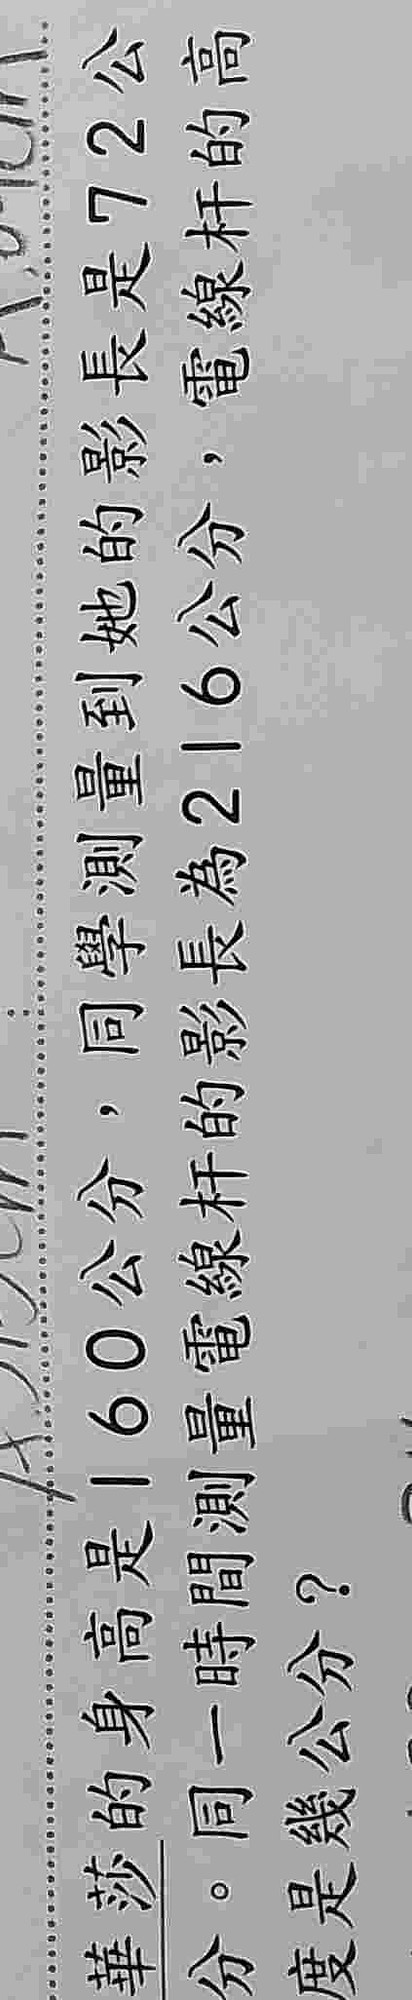 華莎的身高是160公分，同學測量到她的影長是72公
分。同一時間測量電線杆的影長為216公分，電線杆的高
度是幾公分？